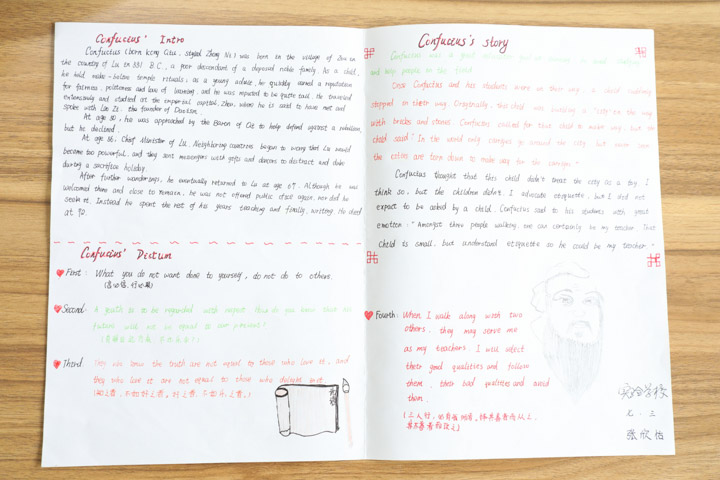 Confucius' Intro
Confucius (born Kong Qiu, styled Zhong Ni) was born in the village of Zou in
the country of Lu in 551 B.C., a poor descendant of a deposed noble family. As a child,
he held make-believe temple rituals; as a young adult, he quickly earned a reputation
for fairness, politeness and love of learning, and he was reputed to be quite tall. He traveled
extensively and studied at the imperial capital, Zhou, where he is said to have met and
spoke with Lao Zi, the founder of Daoism.
At age 50, he was approached by the Baron of Qi to help defend against a rebellion,
but he declined.
At age 56, Chief Minister of Lu. Neighboring countries began to worry that Lu would
become too powerful, and they sent messengers with gifts and dancers to distract and duke
during a sacrifice holiday.
After further wanderings, he eventually returned to Lu at age 67. Although he was
welcomed there and close to remain, he was not offered public office again, nor did he
seek it. Instead he spent the rest of his years teaching and finally, writing. He died
at 72.
Confucius' Dictum
First: What you do not want done to yourself, do not do to others.
Second: A youth is to be regarded with respect. How do you know that his
future will not be equal to our present?
Third: They who know the truth are not equal to those who love it, and
they who love it are not equal to those who delight in it.
(知之者,不如好之者,好之者,不如乐之者。)
Confuceus's story
and help people in this field.
Once Confucius and his students were on their way, a child suddenly
stopped on their way. Originally, this child was building a "city" on the way
with bricks and stones. Confucius called for this child to make way, but the
child said: "In the world only carriages go around the city, but never have
the cities are torn down to make way for the carriage."
Confucius thought that this child didn't treat the city as a toy, I
think so, but the children didn't. I advocate etiquette, but I did not
expect to be asked by a child. Confucius said to his students with great
emotion: "Amongst three people walking, one can certainly be my teacher. That
Child is small, but understand etiquette so he could be my teacher."
Fourth: When I walk along with two
others, they may serve me
as my teachers. I will select
their good qualities and follow
them, their bad qualities and avoid
them.
(三人行,必有我师焉,择其善者而从之,
其不善者而改之)
学校
九.三
张欣怡